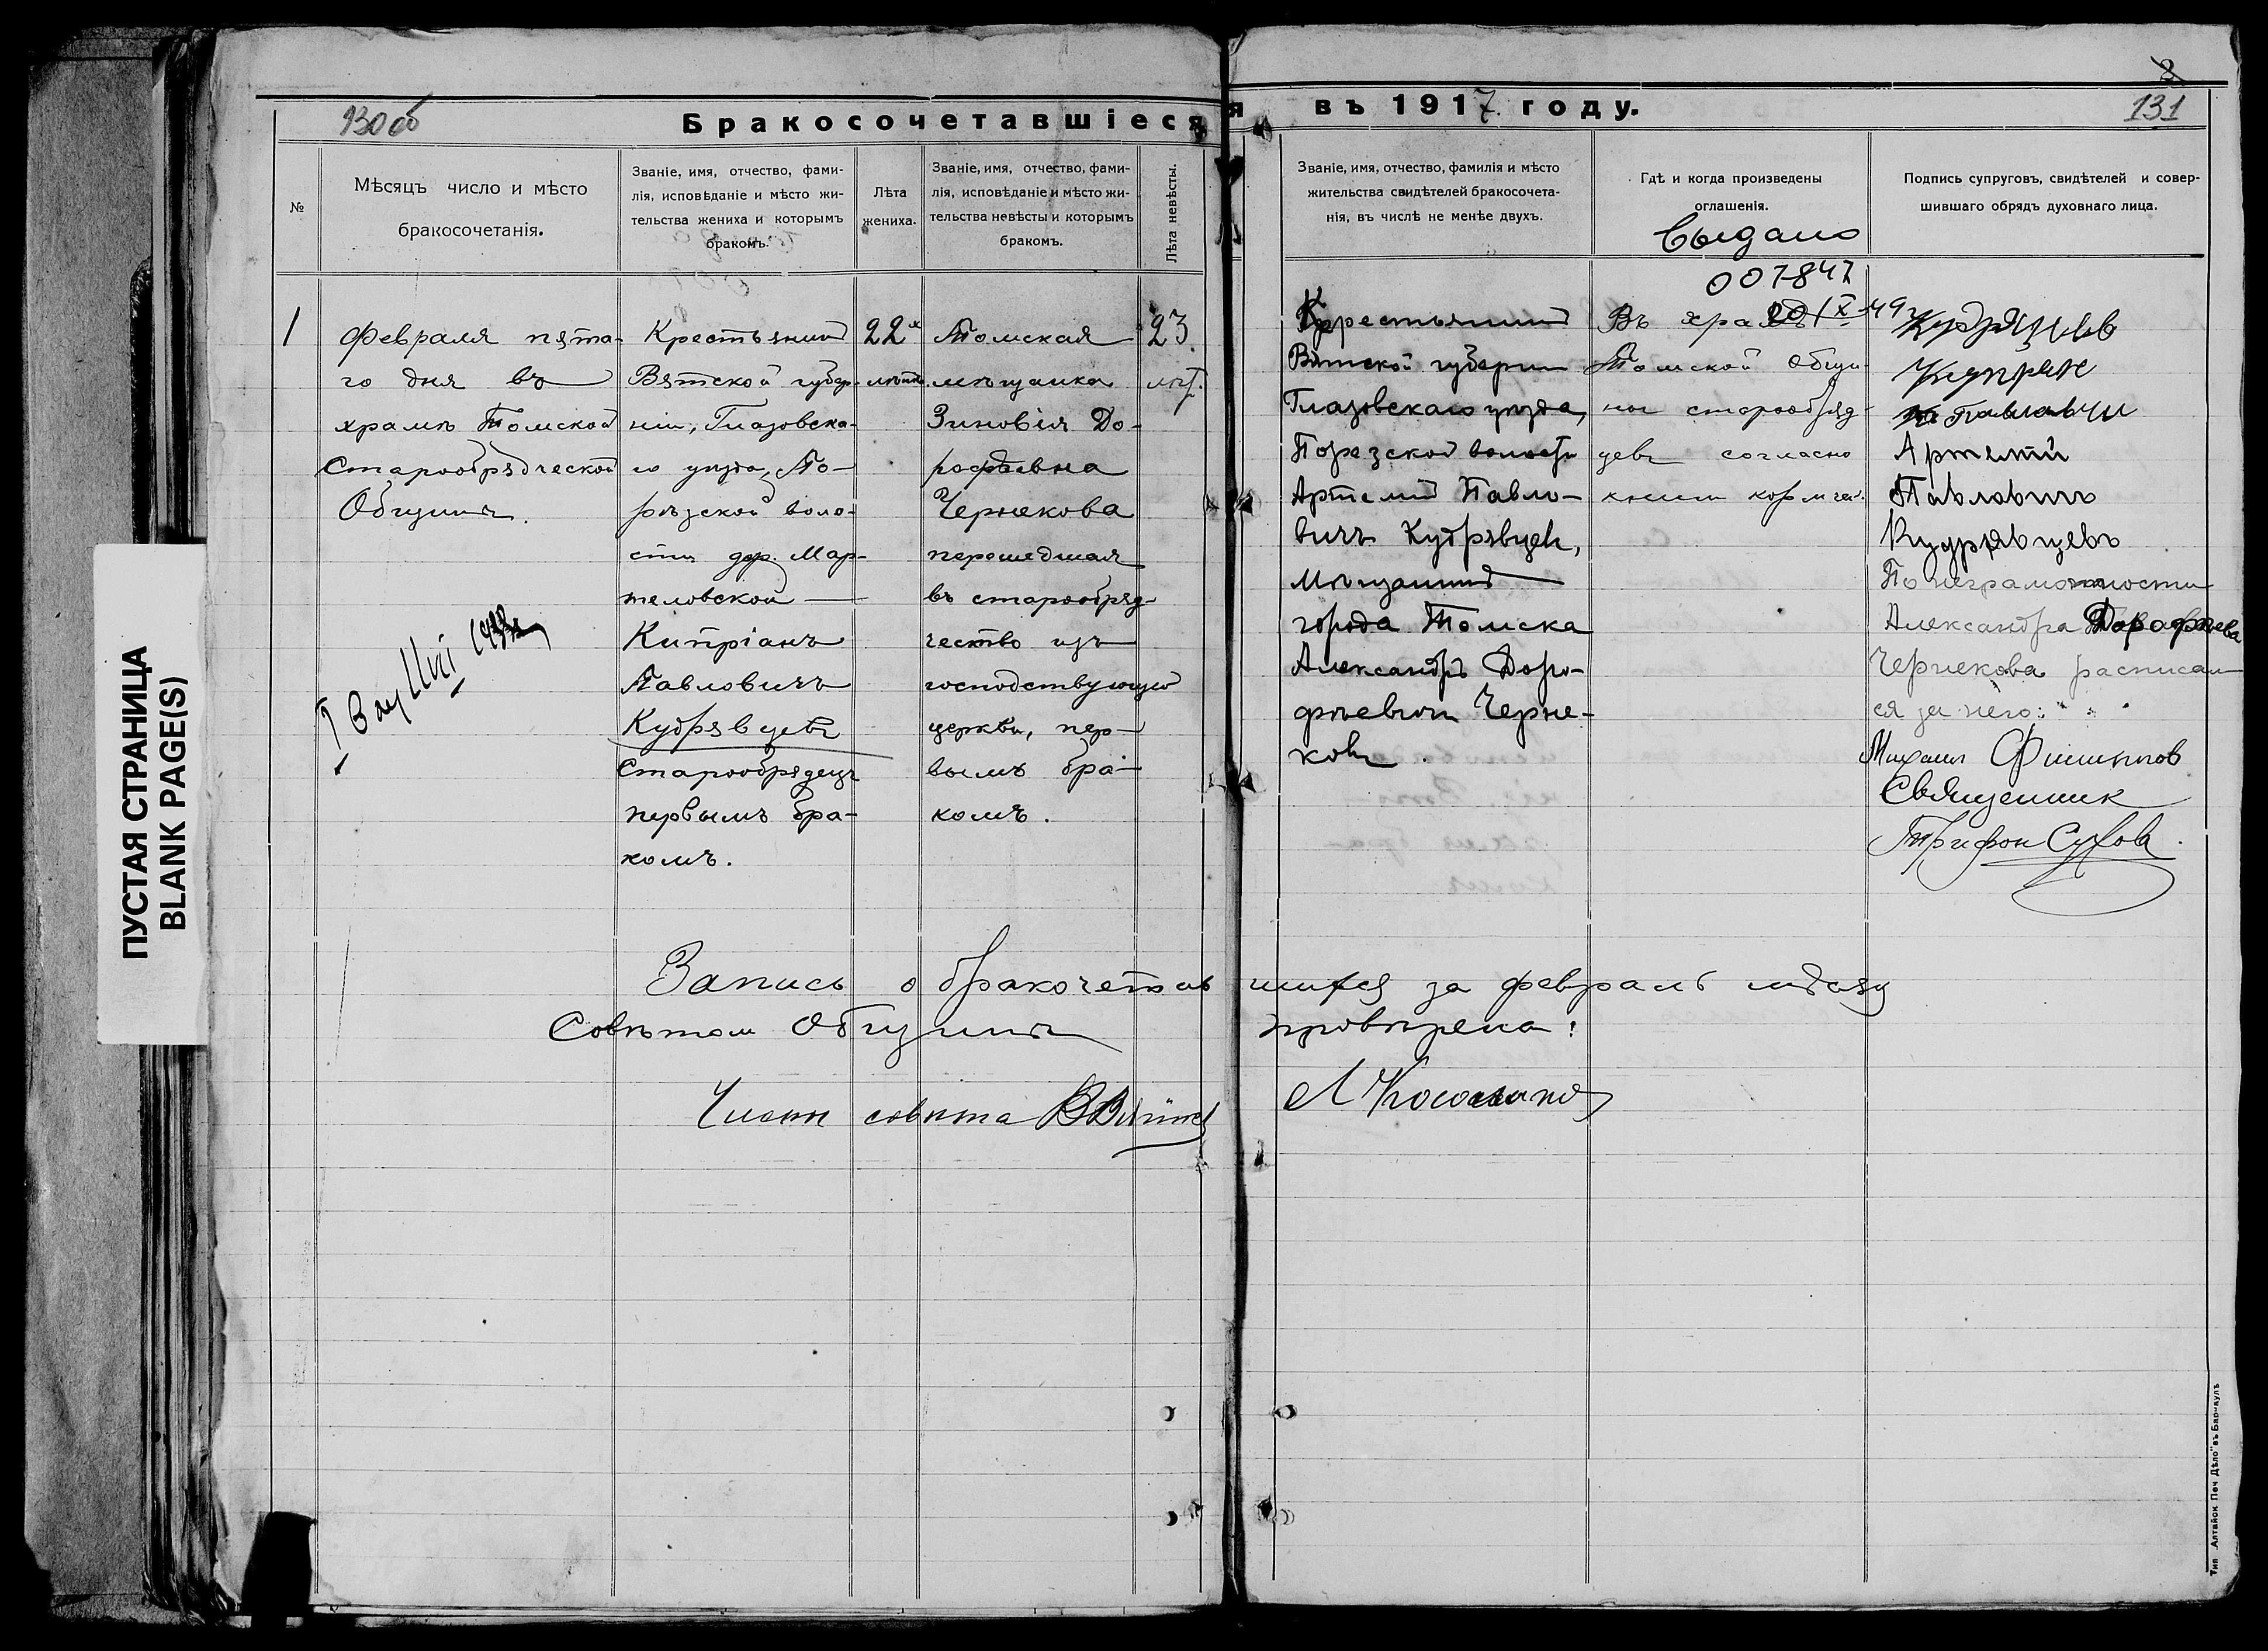 130 об
3
131
Бракосочетавшіеся въ 1917 году.
№
Мѣсяцъ число и мѣсто
бракосочетанія.
Званіе, имя, отчество, фами-
лія, исповѣданіе и мѣсто жи-
тельства жениха и которымъ
бракомъ.
Лѣта
жениха.
Званіе, имя, отчество, фами-
лія, исповѣданіе и мѣсто жи-
тельства невѣсты и которымъ
бракомъ.
Лѣта невѣсты.
Званіе, имя, отчество, фамилія и мѣсто
жительства свидѣтелей бракосочета-
нія, въ числѣ не менѣе двухъ.
Гдѣ и когда произведены
оглашенія.
Подпись супруговъ, свидѣтелей и совер-
шившаго обрядъ духовнаго лица.
Выдано
007847
20/X-49г
1
Февраля пята-
го дня въ
храмѣ Томской
Старообрядческой
Общины.
Крестьянинъ
Вятской губер-
ніи, Глазовска-
го уѣзда, По-
рѣзской воло-
сти дер. Мар-
теловской
Кипріанъ
Павловичъ
Кудрявцевъ
Старообрядецъ
первымъ бра-
комъ.
22х
лѣтъ
Томская
мѣщанка
Зиновія До-
рофѣевна
Чернекова
перешедшая
въ старообряд-
чество изъ
господствующей
церкви, пер-
вымъ бра-
комъ.
23
лѣт.
Крестьянинъ
Вятской губерніи
Глазовскаго уѣзда,
Порезской волости
Артемій Павло-
вичъ Кудрявцевъ,
Мѣщанинъ
города Томска
Александръ Доро-
фѣевичъ Черне-
ковъ.
Въ храмѣ
Томской Общи-
ны старообряд-
цевъ согласно
книги кормчей.
Куприян
Павлавич
Артемій
Павловичъ
Кудрявцевъ
По неграмотности
Александра Дарафѣева
Чернекова расписал-
ся за него:
Михаил Филиппов
Священник
Трифон Сухов
Запись о бракочетавшихся за февраль мѣсяц
Совѣтом Общины провѣрена:
Членъ совѣта
Тип „Алтайск Печ Дѣло" въ Барнаулѣ
ПУСТАЯ СТРАНИЦА
BLANK PAGE(S)